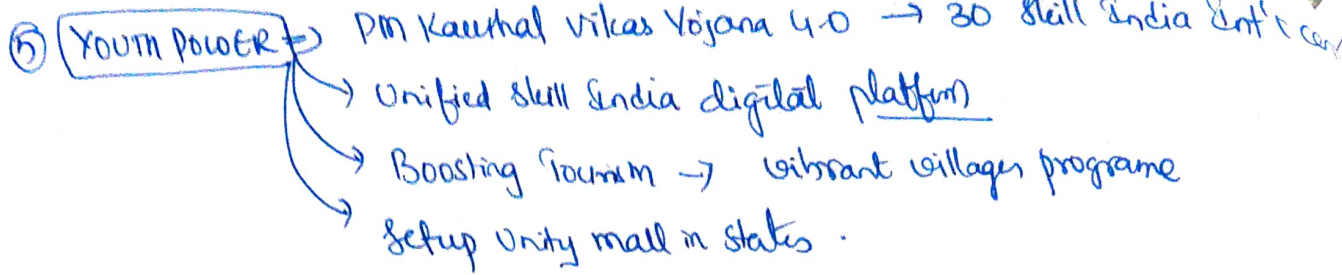 ⑤ YOUTH POWER → PM Kaushal Vikas Yojana 4.0 → 30 Skill India Int'l
→ Unified Skill India digital platform
→ Boosting Tourism → vibrant villages programe
→ Setup Unity mall in states.